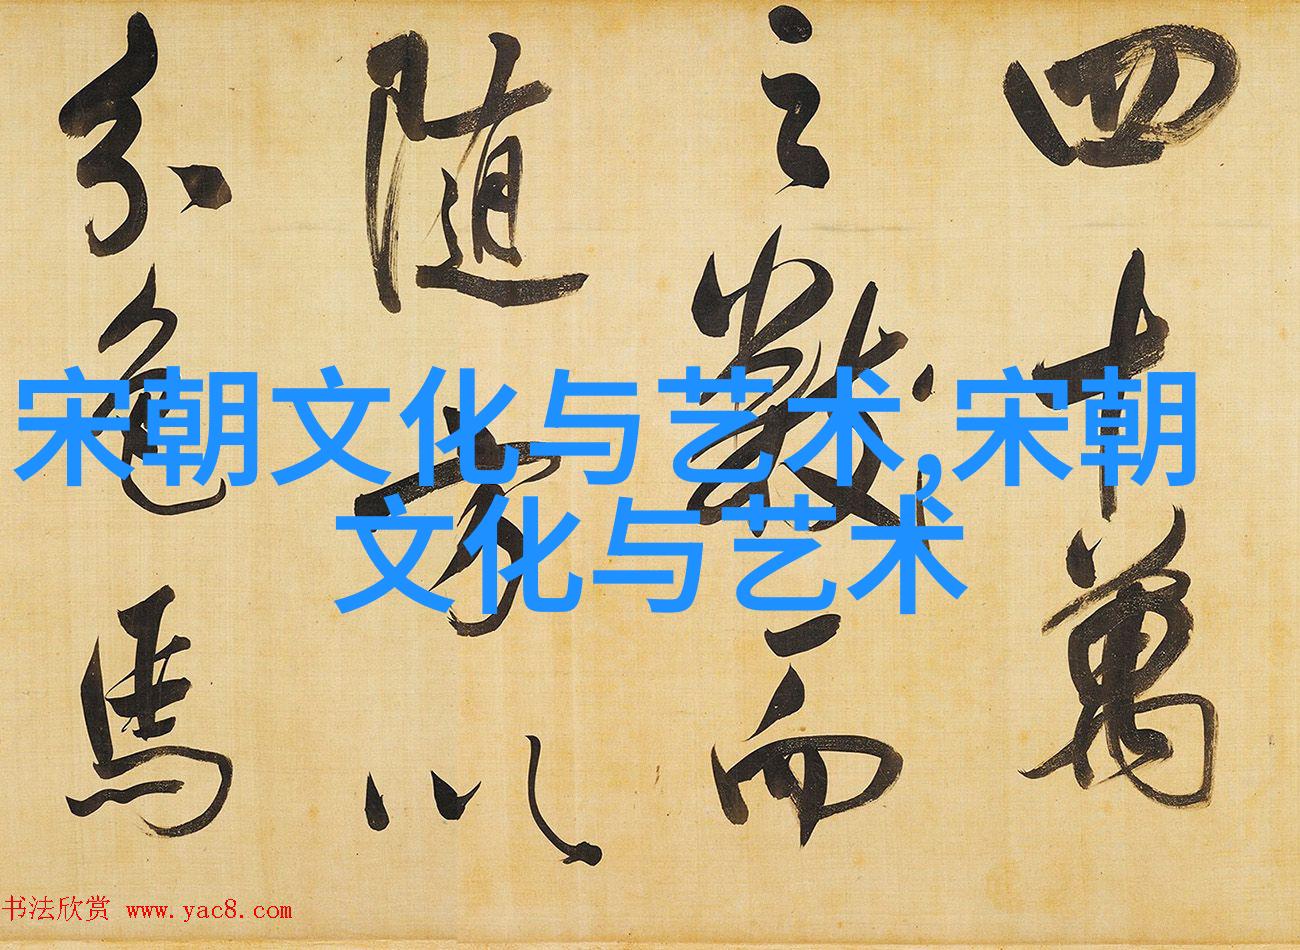 四十萬
之數而
随方以
分色馬
宋朝文化与艺术,宋朝
文化与艺术
书法欣赏 www.yac8.com